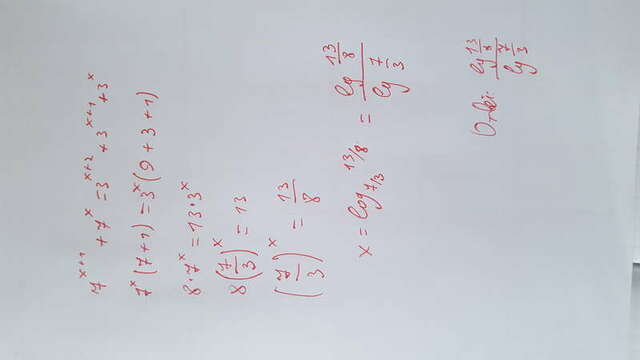 7^{x+1} + 7^x = 3^{x+2} + 3^{x+1} + 3^x
7^x (7+1) = 3^x (9+3+1)
8 · 7^x = 13 · 3^x
8 (7/3)^x = 13
(7/3)^x = 13/8
x = log_{7/3} 13/8 = lg 13/8 / lg 7/3
Ответ: lg 13/8 / lg 7/3